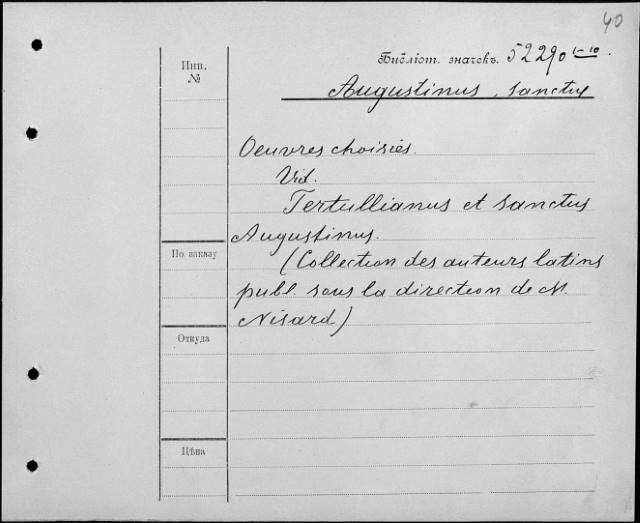 40
Библіот. значекъ. 52290 1-10.
Инв.
№
Augustinus, sanctus
Oeuvres choisies.
Vid.
Tertullianus et sanctus
Augustinus.
По заказу
(Collection des auteurs latins
publ. sous la direction de M.
Nisard)
Откуда
Цѣна